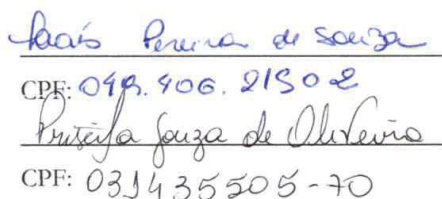 Laás Pereira de Souza
CPF: 049.406.21502
Priscila Souza de Oliveira
CPF: 031435505-70